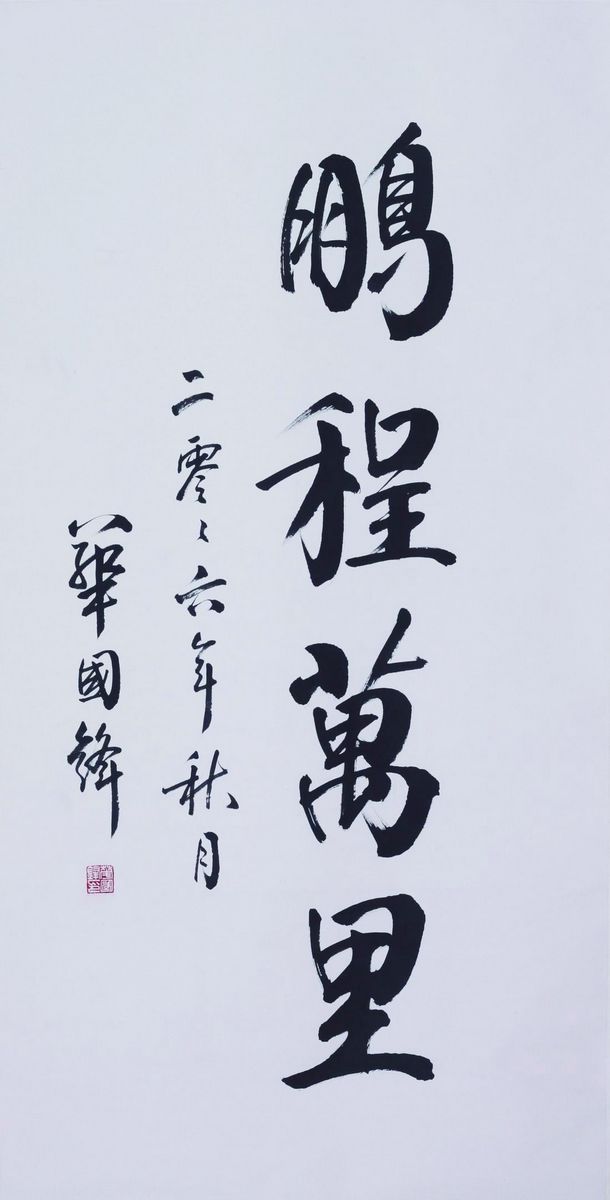 鵬程萬里
二零〻六年秋月
華國鋒